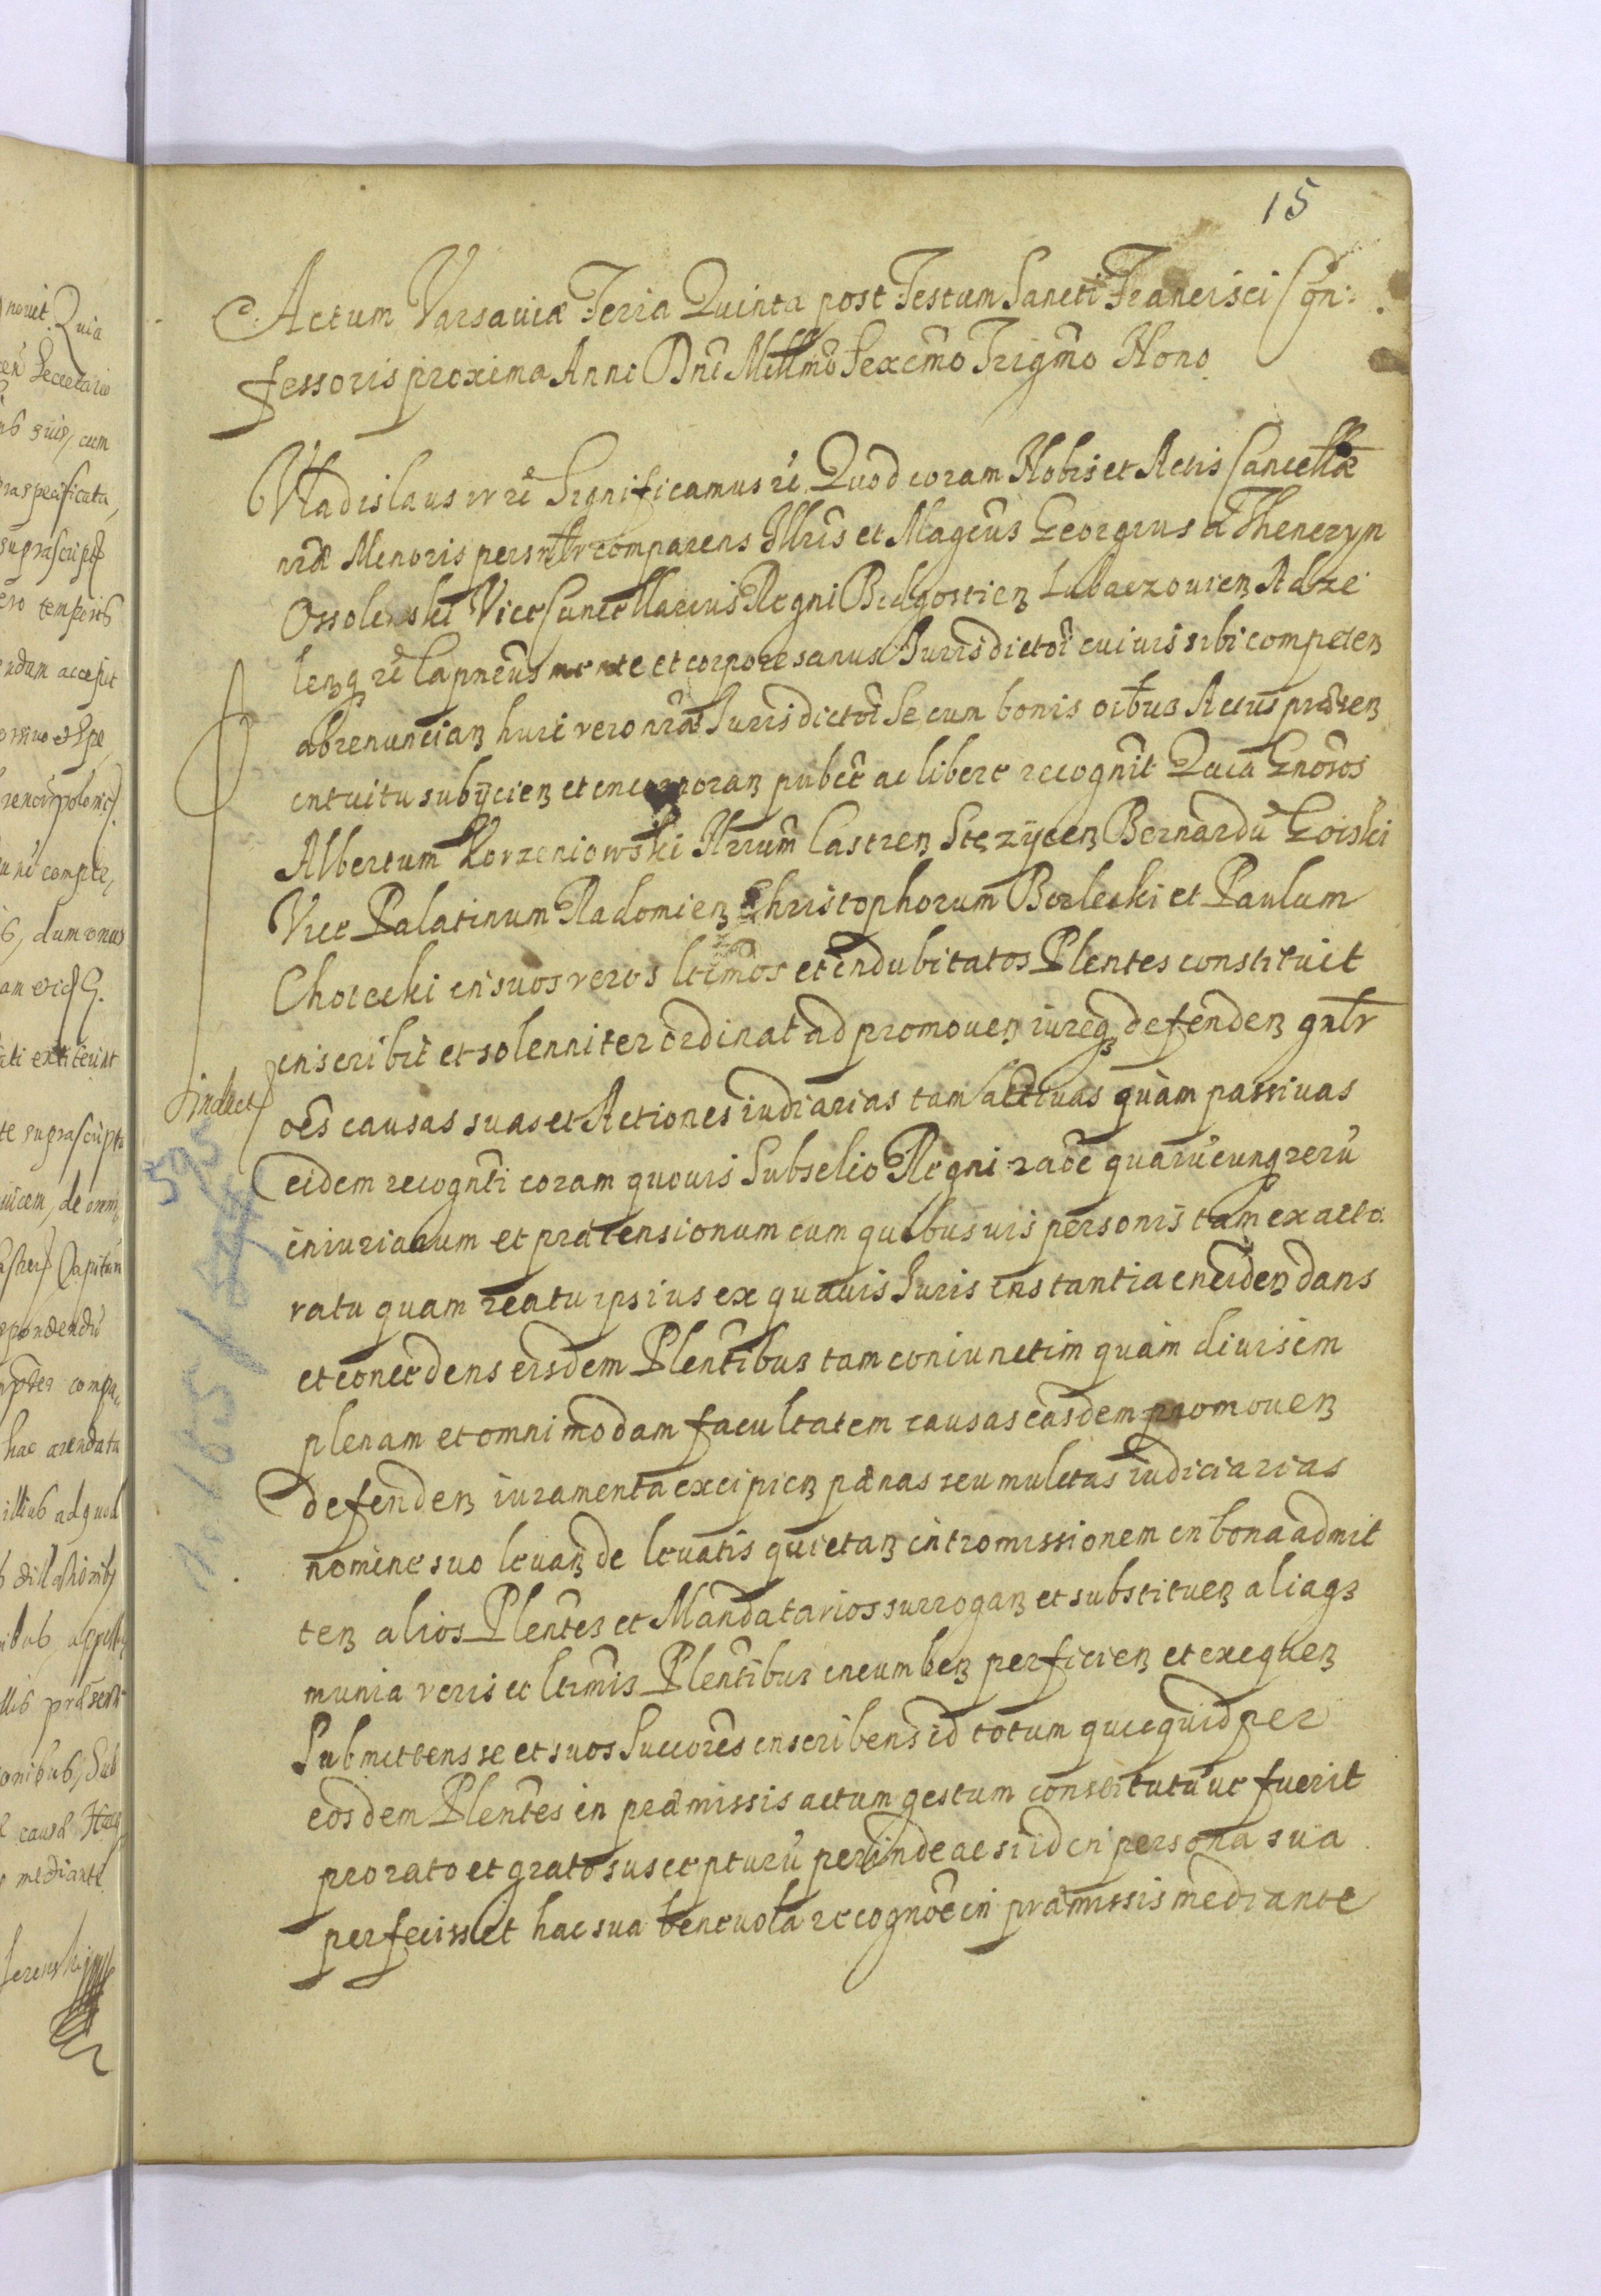 15
Actum Varsauiæ Feria Quinta post Festum Sancti Francisci Con:
fessoris proxima Anno Dni Millmo Sexcmo Trigmo Nono
Vladislaus IV rẽ Significamus rẽ Quod coram Nobis et Actis Cancellæ
nræ Minoris persnltr comparens Illris et Magcus Georgius a Thenczyn
Ossolinski Vice Cancellarius Regni Bidgostien Lubaczouien Adze
lenq rẽ Capneus mente et corpore sanus Jurisdictoi cuiuis sibi competen
abrenuncian huic vero nræ Jurisdictoi se cum bonis oibus Actus præsen
intuitu subijcien et incorporan pubce ac libere recognit Quia Gnosos
Albertum Korzeniowski Nrium Castren Stezycen Bernardu Goiski
Vice Palatinum Radomien Christophorum Borlecki et Paulum
Chotecki in suos veros ltimos et indubitatos Plentes constituit
inscribit et solenniter ordinat ad promouen iureq defenden gnltr
oes causas suas et Actiones iudiarias tam actiuas quam passiuas
eidem recognti coram quouis Subselio Regni raoe quarucunq reru
iniuriarum et prætensionum cum quibusuis personis tam ex acto
ratu quam reatu ipsius ex quauis Juris instantia inciden dans
et concedens eisdem Plentibus tam coniunctim quam diuisim
plenam et omnimodam facultatem causas easdem promouen
defenden iuramenta excipien pænas seu mulctas iudiciarias
nomine suo leuan de leuatis quietan intromissionem in bona admit
ten alios Plentes et Mandatarios surrogan et substituen aliaq
munia veris et ltimis Plentibus incumben perficien et exequen
Submittens se et suos Succores inscribens id totum quicquid per
eosdem Plentes in præmissis actum gestum constitutu ue fuerit
pro rato et grato suscepturu perinde ac si id in persona sua
perfecisset hac sua beneuola recognoe in præmissis mediante